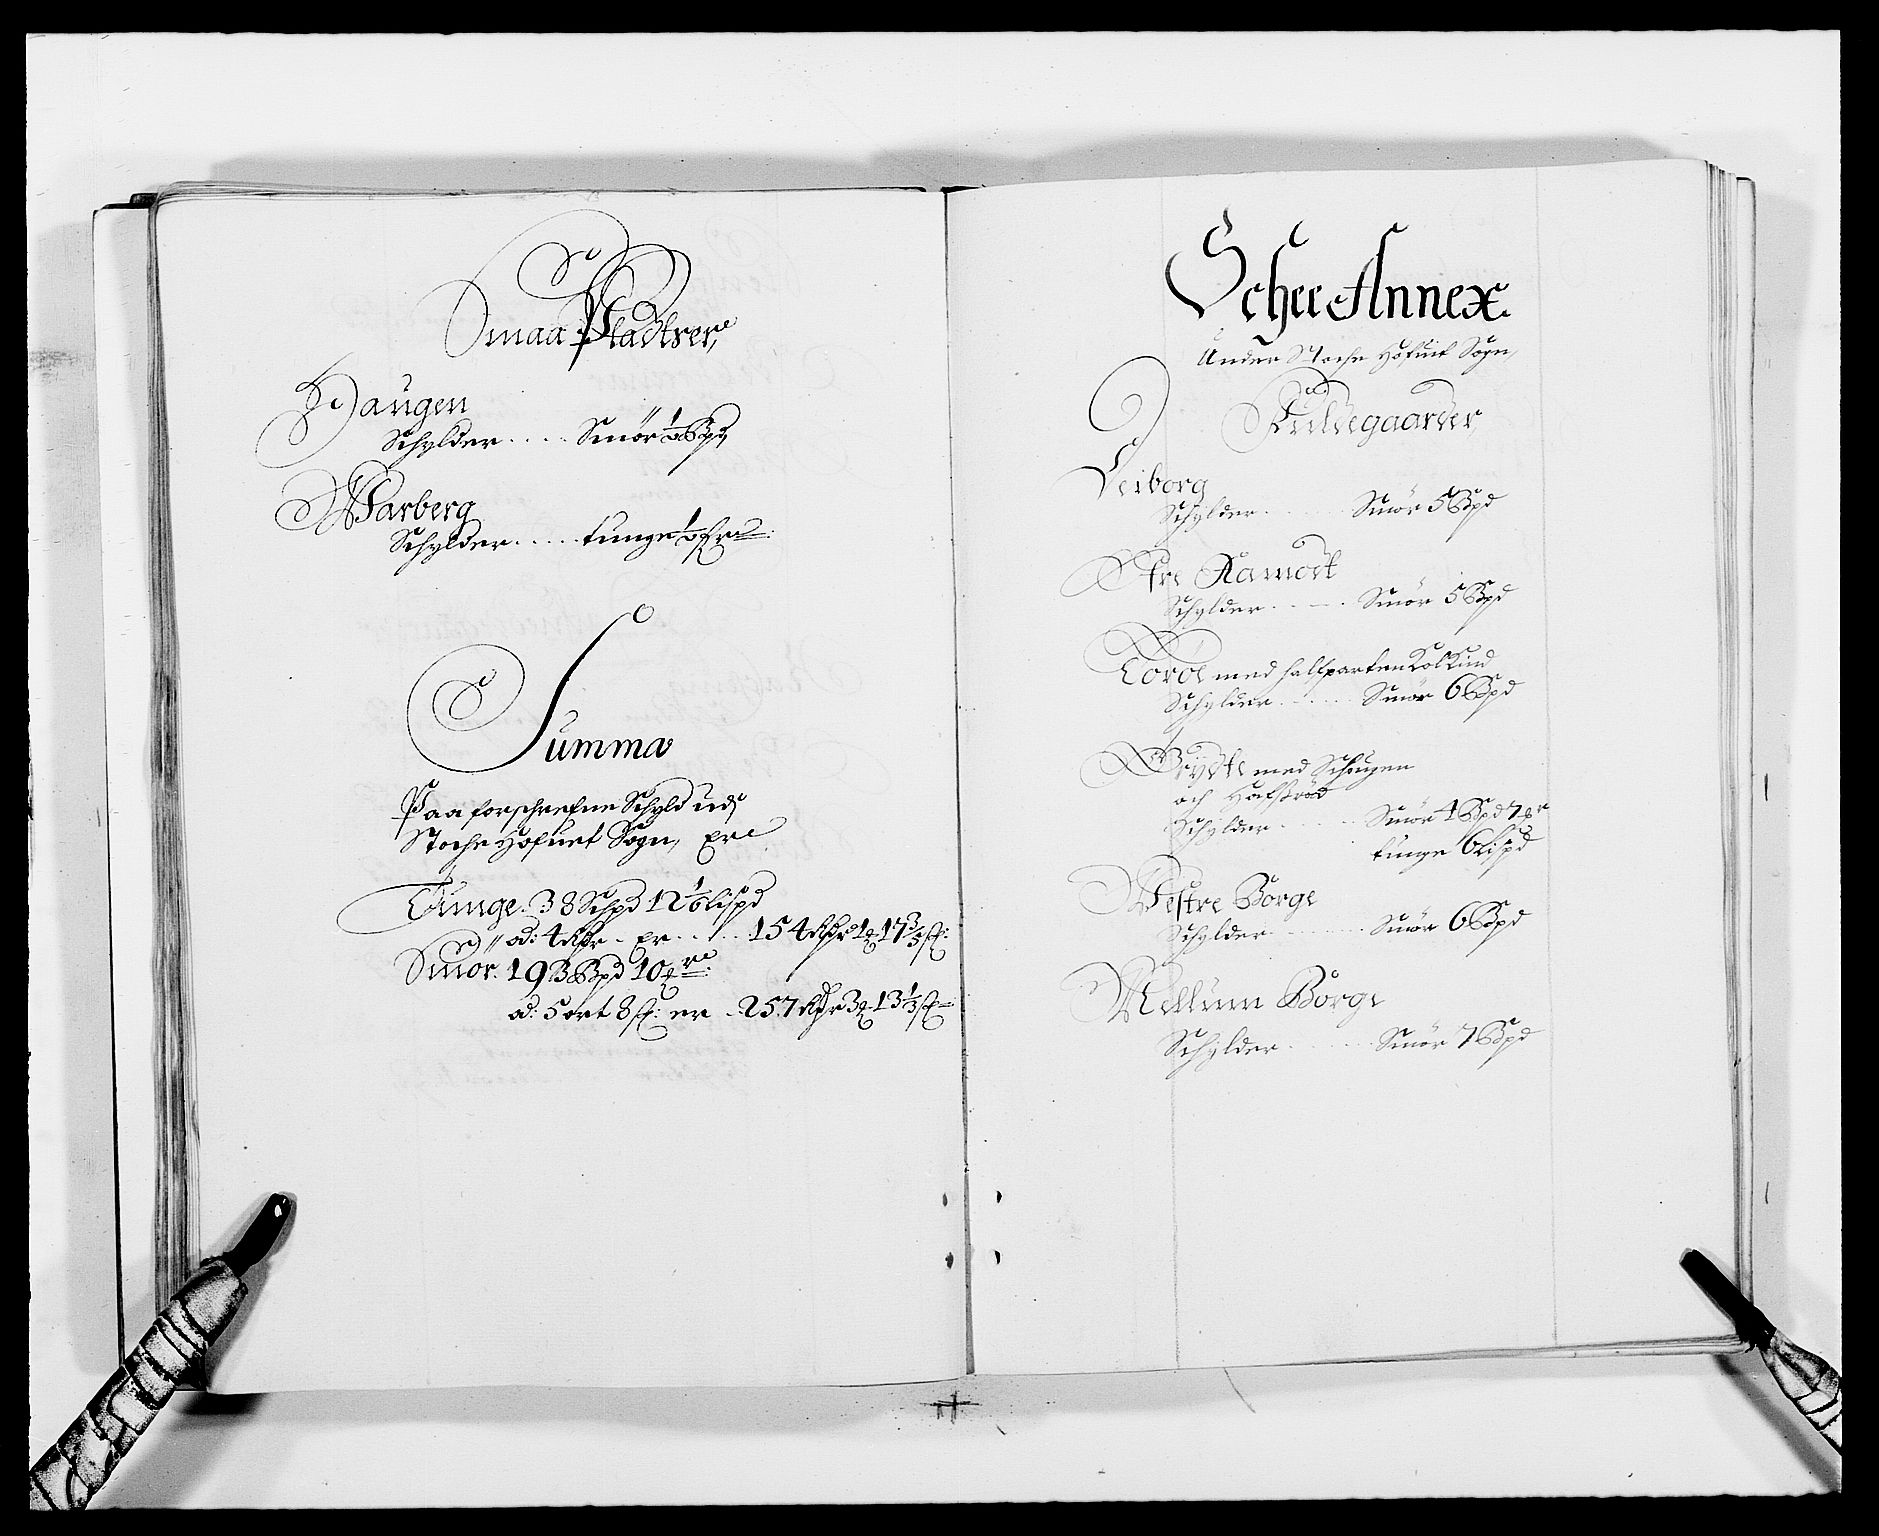 Smaa Pladtser,
Haugen
Schylder . . . . Smör ½ Bpd
Warberg
Schylder . . . . . tunge ½
Summa
Paa forschrefne Schyld udj
Stoche Hofuet Sogn, Ere
Tunge. 38 Schpd 12½ lispd
ad: 4 Rdr - Er . . . . . 154 Rdr 1 17 3/5 s:
Smör. 193 Bpd 10
ad: 5 ort 8 s: er . 257 Rdr 3 13 1/3 s
Schee Annex.
Under Stoche Hofuet Sogn,
Fuldegaarder,
Veiborg
Schylder . . . . . . Smör 5 Bpd
Ofre Ramost
Schylder . . . . Smör 5 Bpd
Toröe med halfparten
Schylder . . . . . . Smör 6 Bpd
med Schougen
och
Schylder . . . . . . Smör 4 Bpd 7
tunge 6 lispd
Westre Borge
Schylder . . . . . . . Smör 6 Bpd
Mellum Borge
Schylder . . . . . . Smör 7 Bpd